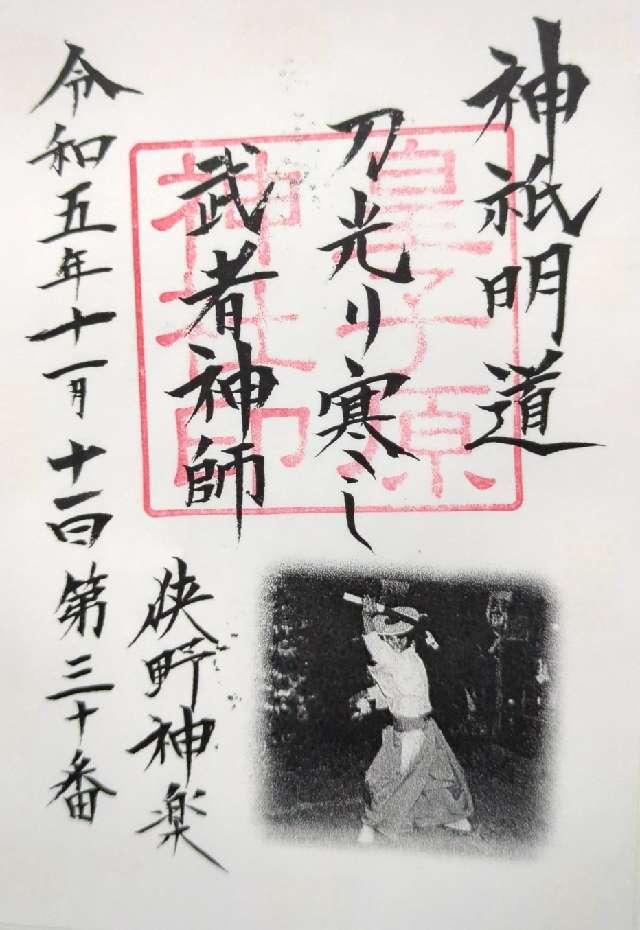 神祇明道
刀光り寒し
武者神師
狭野神楽
令和五年十一月十一日 第三十番
皇子原
神社印